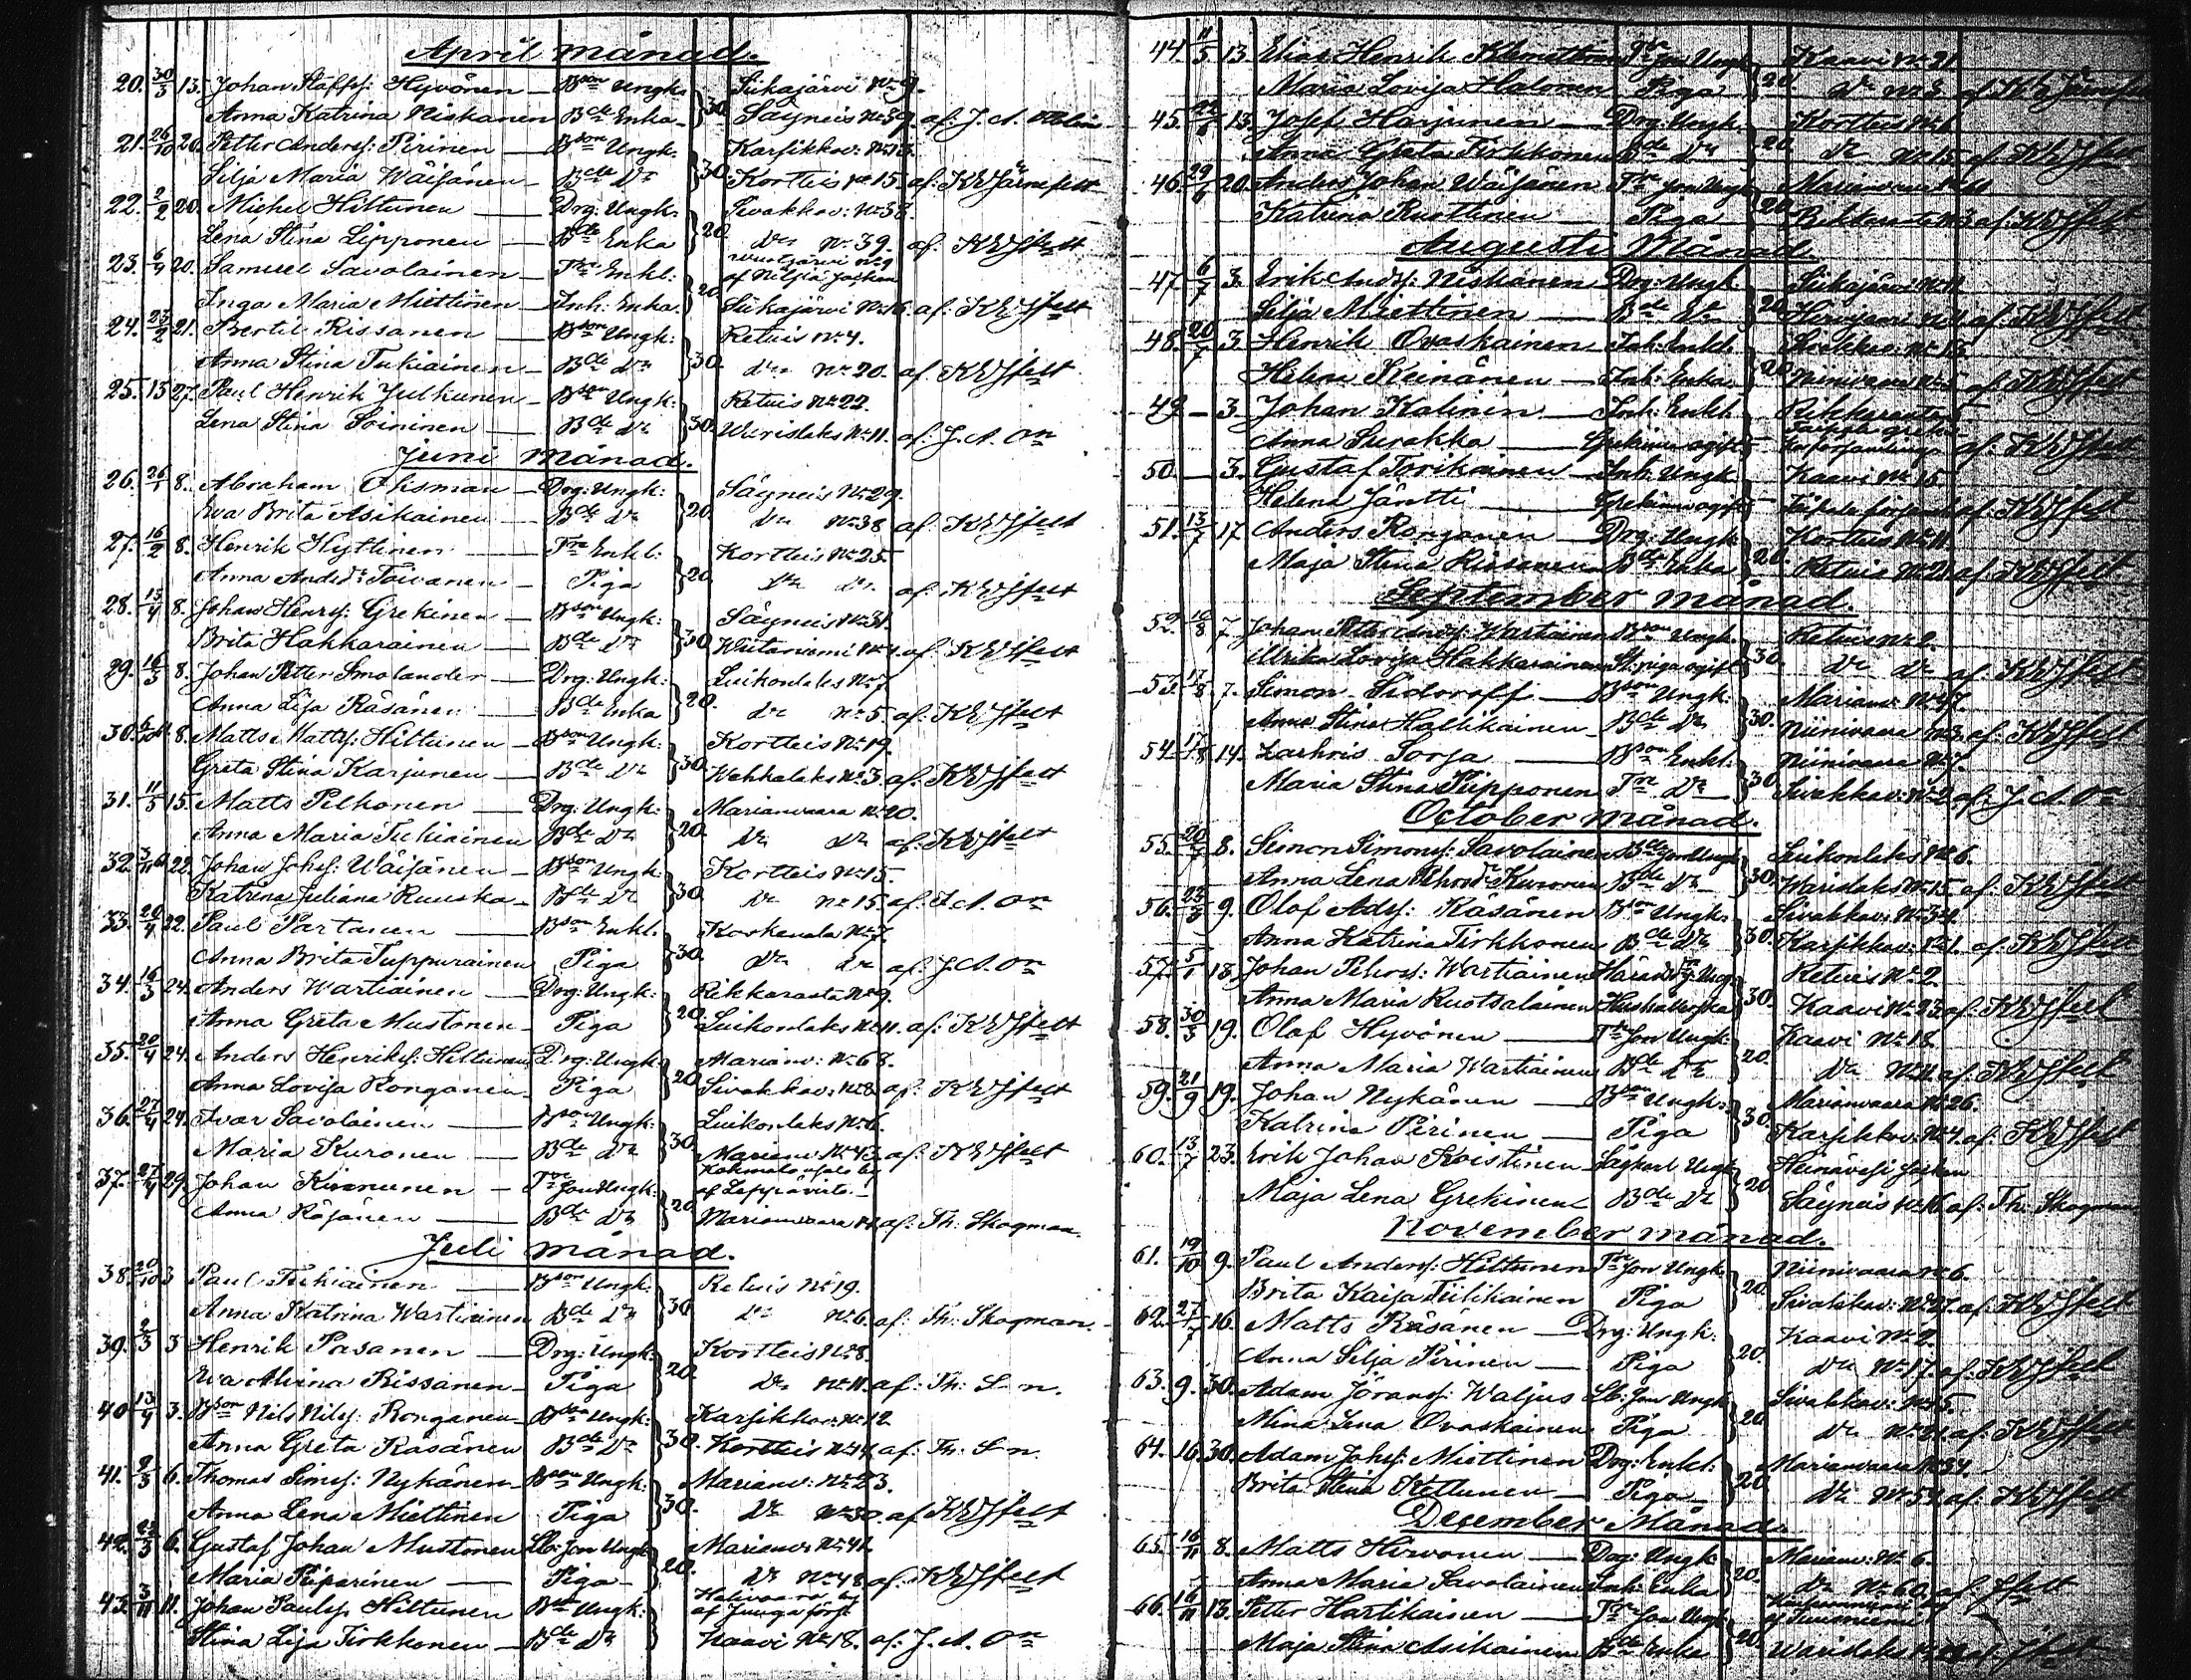 April månad.
20. 30/3 13. Johan Staffs: Hyvönen — Bson Ungk. Siikajärvi No 9.
Anna Katrina Niskanen Bde Enka } 30. Säyneis No 39. af: J. A.
21. 26/10 20. Petter Anders: Pirinen — Bson Ungk: Karsikkov: No
Silja Maria Wäisänen — Bde Do } 30. Kortteis No 15. af: K E Järnefelt
22. 2/2 20. Michel Hiltunen — Drg: Ungk: Sivakkav: No 38.
Lena Stina Lipponen — Bde Enka } 20. Do No 39. af: K E Jfelt
23. 6/4 20. Samuel Savolainen — Enkl: No 9 af Nilsiä Socken
Inga Maria Miettinen — Inh: Enka } 20. Siikajärvi No 16. af: K E Jfelt
24. 23/2 21. Bertil Rissanen — Bson Ungk: Retuis No 4.
Anna Stina Tukiainen — Bde Do } 30. Do No 20. af K E Jfelt
25. 13 27. Paul Henrik Julkunen — Bson Ungk: Retuis No 22.
Lena Stina Soininen — Bde Do } 30. Warislaks No 11. af: J. A. On
Juni månad.
26. 26/1 8. Abraham Ohsman — Drg: Ungk: Säyneis No 29.
Eva Brita Asikainen — Bde Do } 20. Do No 38 af: K E Jfelt
27. 16/2 8. Henrik Hyttinen — Enkl: Kortteis No 25.
Anna Andsdr Toivanen — Piga } 20. Do Do af: K E Jfelt
28. 13/4 8. Johan Henrs: Grekinen — Bson Ungk: Säyneis No 31.
Brita Hakkarainen — Bde Do } 30. Wiitaniemi No 4. af: K E Jfelt
29. 16/3 8. Johan Petter Smolander — Drg: Ungk: Luikonlaks No 7
Anna Lisa Räsänen — Bde Enka } 20. Do No 5. af: K E Jfelt
30. 8. Matts Matts: Hiltunen — Bson Ungk: Kortteis No 19.
Greta Stina Karjunen — Bde Do } 30. Wehkalaks No 3. af: K E Jfelt
31. 11/5 15. Matts Pelkonen — Drg: Ungk: Marianvaara No 20.
Anna Maria Tukiainen Bde Do } 20. Do Do af: K E Jfelt
32. 22. Johan Johss: Wäisänen — Bson Ungk: Kortteis No 15.
Katrina Juliana Ruuska — Bde Do } 30. Do No 15. af: J. A. On
33. 20/4 22. Paul Partanen — Bson Enkl. Koskenala No 7.
Anna Brita Tuppurainen Piga } 30. Do Do af: J. A. On
34. 16/3 24. Anders Wartiainen — Drg: Ungk: Rikkaranta No 9.
Anna Greta Mustonen — Piga } 20. Luikonlaks No 11. af: K E Jfelt
35. 20/4 24. Anders Henriks: Hiltunen Drg: Ungk: Marianv: No 68.
Anna Lovisa Ronganen Piga } 20. Sivakkav: No 8. af: K E Jfelt
36. 27/4 24. Ivar Savolainen — Bson Ungk: Luikonlaks No 6.
Maria Kuronen — Bde Do } 30. Marianv No 43. af: K E Jfelt
37. 27/4 29. Johan — Son Ungk: af Leppävirta.
Anna Räsänen — Bde Do } 20. Marianvaara af: Th: Skogman
Juli månad.
38. 20/10 3 Paul Tukiainen — Bson Ungk: Retuis No 19.
Anna Katrina Wartiainen Bde Do } 30. Do No 6. af: Th: Skogman.
39. 2/3 3 Henrik Pasanen — Drg: Ungk: Kortteis No 8.
Eva Miina Rissanen — Piga } 20. Do No 11. af: Th: S n.
40 13/4 3. Bson Nils Nils: Ronganen — Bson Ungk: Karsikkov: No 12
Anna Greta Räsänen Bde Do } 30. Kortteis No 14. af: Th: S n.
41. 2/3 6. Thomas Sims: Nykänen — Bson Ungk: Marianv: No 23.
Anna Lena Miettinen Piga } 30. Do No 30 af K E Jfelt
42. 25/3 6. Gustaf Johan Mustonen Lb: Son Ungk Marianv: No 41
Maria Piiparinen — Piga } 20. Do No 48 af: K E Jfelt
43. 3/11 11. Johan Pauls: Hiltunen Bson Ungk: af Juuga förs:
Stina Lisa Tirkkonen — Bde Do } Kaavi No 18. af: J. A. On
44. 11/5 13. Elias Henrik Son Ungk Kaavi No 21
Maria Lovisa Halonen — Piga } 20. Do No 3. af: K E Järnefelt
45. 13. Josef Harjunen — Drg: Ungk. Kortteis No 6
Anna Greta Tirkkonen Bde Do } 20. Do No 15 af K E Jfelt
46. 29/6 20. Anders Johan Wäisänen Son Ungk Marianvaara
Katrina Ruottinen — Piga } 20. No 3 af: K E Jfelt
Augusti Månad.
47. 6/7 3. Erik Ands: Niskanen Drg: Ungk: Siikajärvi No 11
Silja Miettinen — Bde Do } 20. Hirvijärvi No af: K E Jfelt
48. 20/7 3. Henrik Ovaskainen Inh: Enkl.
Helena Keinänen — Inh: Enka } 20. Niinivaara No 5 af: K E Jfelt
49 — 3. Johan Kalinin — Inh: Enkl. Rikkaranta
Anna Surakka — Grekinna ogift af K E Jfelt
50. — 3. Gustaf Torikainen — Inh. Ungk Kaavi No 15
Helena Jäntti — Grekinna ogift af: K E Jfelt
51. 13/7 17 Anders Ronganen — Drg: Ungk Kortteis No 11.
Maja Stina Rissanen Bde Enka } 20. Retuis No af: K E Jfelt
September månad.
52. 10/8 7. Johan Petter Ands: Wartiainen Bson Ungk. Retuis No 2.
Ulrika Lovisa Hakkarainen St: piga ogift } 30. Do Do af K E Jfelt
53. 17/8 7. Simon Sidoroff — Bson Ungk: Marianv: No 47.
Anna Stina Haltikainen Bde Do } 30. Niinivaara No 3. af: K E Jfelt
54. 17/8 14. Zachris Sorsa — Bson Enkl: Niinivaara No 7.
Maria Stina Piipponen Do } 30. Sivakkav: No 2. af: J. A. On
October månad.
55. 20/7 8. Simon Simons: Savolainen Ungk Luikonlaks No 6.
Anna Lena Kuronen Bde Do } 30. Warislaks No 15. af: K E Jfelt
56. 25/3 9. Olof Ads: Räsänen Bson Ungk: Sivakkav: No 34.
Anna Katrina Tirkkonen Bde Do } 30. Karsikkov: No 1. af: K E Jfelt
57. 5/1 18. Johan Petters: Wartiainen Ung. Retuis No 2.
Anna Maria Ruotsalainen Hushållerska } 30. Kaavi No 23. af: K E Jfelt
58. 30/3 19. Olof Hyvönen — Son Ungk: Kaavi No 18.
Anna Maria Wartiainen Bde Do } 20. Do No 11. af: K E Jfelt
59. 21/9 19. Johan Nykänen — Bson Ungk: Marianvaara No 26.
Katrina Pirinen — Piga } 30. Karsikkov: No 4. af: K E Jfelt
60. 13/7 23. Erik Johan Koistinen Sågkarl Ungk Heinävesi Socken
Maja Lena Grekinen Bde Do } 20. Säyneis No 16. af: Th: Skogman
November månad.
61. 19/10 9. Paul Anders: Hiltunen Son Ungk. Niinivaara No 6.
Brita Kaisa Tiilikainen Piga } 20. Sivakkav: No 27. af: K E Jfelt
62. 27/7 16. Matts Räsänen — Drg: Ungk: Kaavi No 2.
Anna Silja Pirinen — Piga } 20. Do No 17. af: K E Jfelt
63. 9. 30. Adam Görans: Waljus Lb: Son Ungk Sivakkav: No 5.
Miina Lena Ovaskainen Piga } 20. Do No 21. af: K E Jfelt
64. 16. 30. Adam Johs: Miettinen Drg: Enkl: Marianvaara No 34.
Brita Stina Kettunen — Piga } 20. Do No 54. af: K E Jfelt
December Månad.
65. 16/11 8. Matts Hirvonen — Drg: Ungk Marianv: No 6.
Anna Maria Savolainen Inh: Enka } 20. Do No 60. af: Jfelt
66. 16/11 13. Petter Hartikainen — Son Ungk af Tuusniemi
Maja Stina Asikainen Bde Enka } 20. Warislaks af: Jfelt